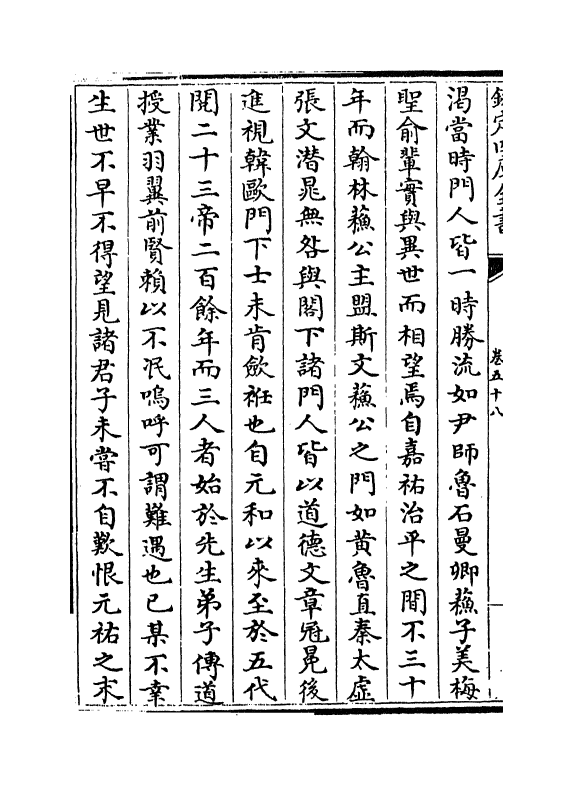 欽定四庫全書
卷五十八
渴當時門人皆一時勝流如尹師魯石曼卿蘓子美梅
聖俞輩實與異世而相望焉自嘉祐治平之間不三十
年而翰林蘓公主盟斯文蘓公之門如黄魯直秦太虚
張文潜晁無咎與閣下諸門人皆以道德文章冠冕後
進視韓歐門下士未肯歛袵也自元和以來至於五代
閱二十三帝二百餘年而三人者始於先生弟子傳道
授業羽翼前賢賴以不泯嗚呼可謂難遇也已某不幸
生世不早不得望見諸君子未嘗不自歎恨元祐之末